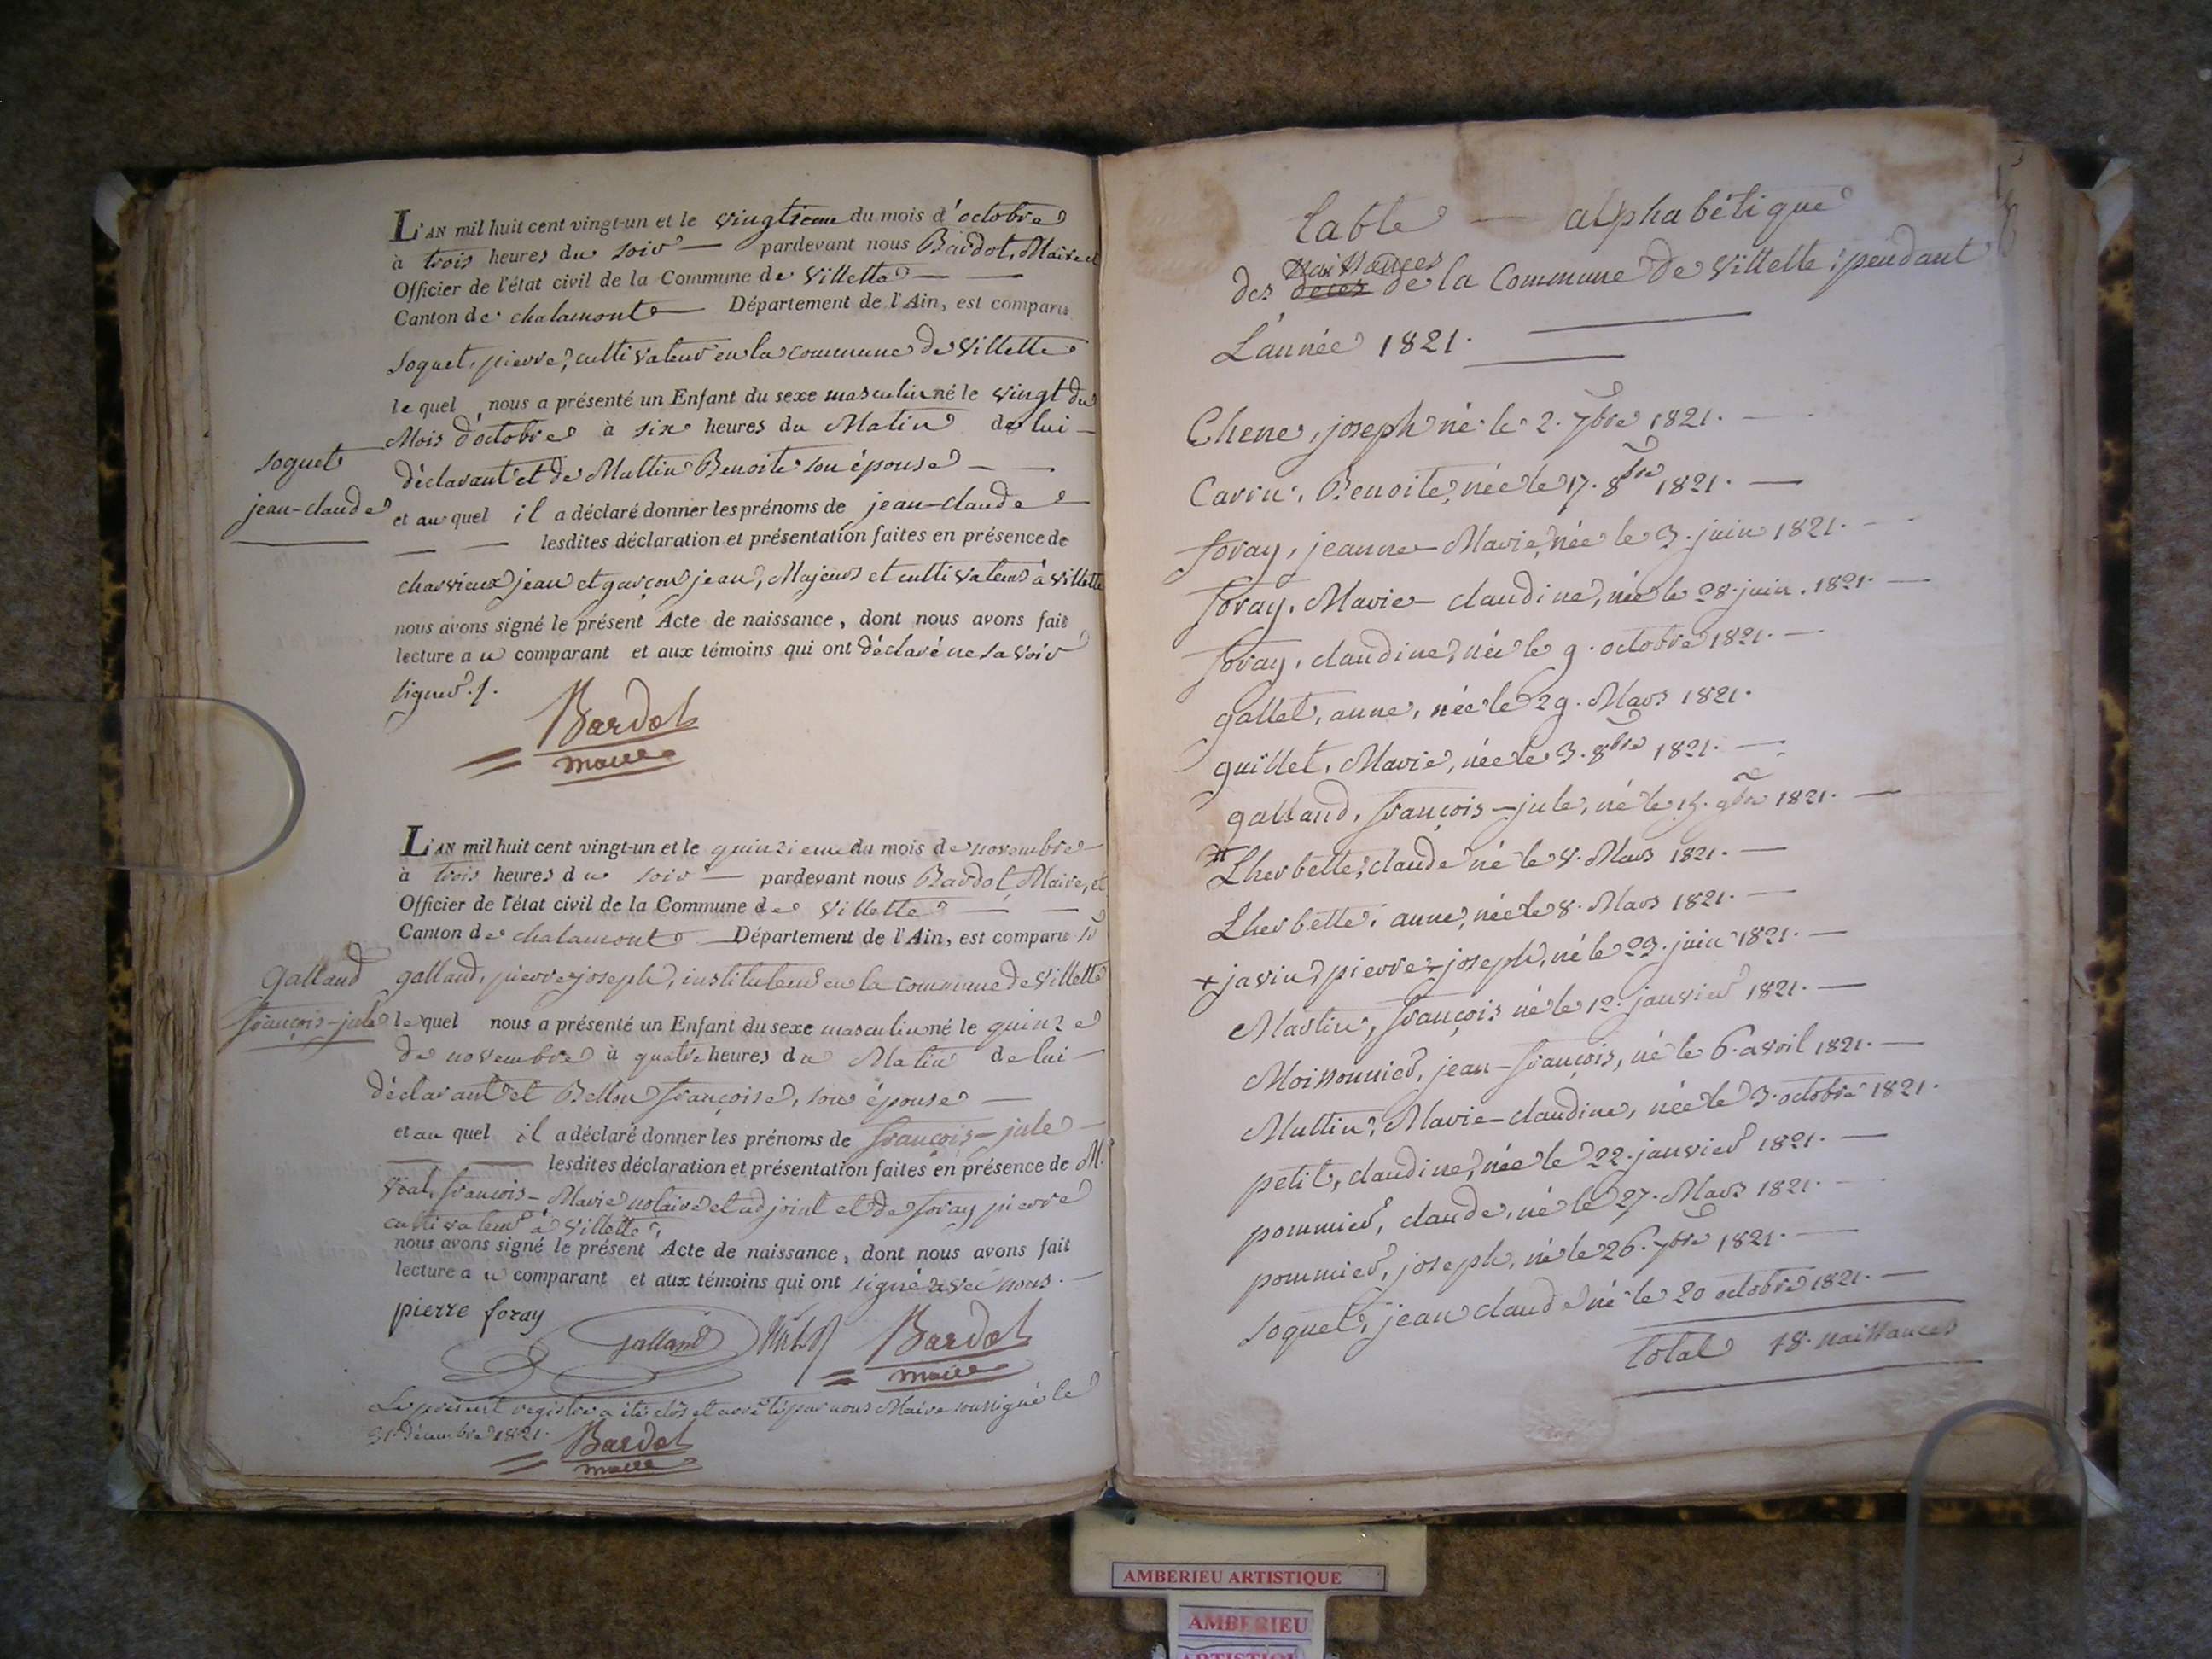 L'AN mil huit cent vingt-un et le vingtieme du mois d'octobre
à trois heures du soir — pardevant nous Bardot, Maire et
Officier de l'état civil de la Commune de Villette — —
Canton de chalamont — Département de l'Ain, est comparu
Soquet, pierre, cultivateur en la commune de Villette
le quel nous a présenté un Enfant du sexe masculin né le vingt du
Mois d'octobre à six heures du Matin de lui —
déclarant et de Multin Benoite son épouse — —
Soquet
jean-claude
et au quel il a déclaré donner les prénoms de jean-claude
— — lesdites déclaration et présentation faites en présence de
charvieux jean et garçon jean, Majeurs et cultivateurs à Villette
nous avons signé le présent Acte de naissance, dont nous avons fait
lecture au comparant et aux témoins qui ont déclaré ne savoir
signer./.
Bardot
maire
L'AN mil huit cent vingt-un et le quinzieme du mois de novembre
à trois heures du soir — pardevant nous Bardot, Maire, et
Officier de l'état civil de la Commune de Villette — —
Canton de chalamont — Département de l'Ain, est comparu Sr
Galland
françois-jule
galland, pierre-joseph, instituteur en la commune de Villette
le quel nous a présenté un Enfant du sexe masculin né le quinze
de novembre à quatre heures du Matin de lui —
déclarant et Bellon françoise, son épouse —
et au quel il a déclaré donner les prénoms de françois-jule —
— — lesdites déclaration et présentation faites en présence de M.
Vial, françois-Marie notaire et adjoint et de foray pierre
cultivateur à Villette,
nous avons signé le présent Acte de naissance, dont nous avons fait
lecture au comparant et aux témoins qui ont signé avec nous. —
pierre foray
Galland Bardot
maire
Le présent registre a été clos et arrêté par nous Maire soussigné le
31 décembre 1821.
Bardot
maire
table — alphabétique
naissances
des deces de la Commune de Villette, pendant
L'année 1821.
Chene, joseph né le 2. 7bre 1821. —
Carin, Benoite, née le 17. 8bre 1821. —
foray, jeanne-Marie, née le 3. juin 1821. —
foray, Marie-claudine, née le 28. juin. 1821. —
foray, claudine, née le 9. octobre 1821. —
gallet, anne, née le 29. Mars 1821.
guillet, Marie, née le 3. 8bre 1821. —
galland, françois-jule, né le 15. 9bre 1821. —
Lherbette, claude né le 8. Mars 1821. —
Lherbette, anne, née le 8. Mars 1821. —
+ javin, pierre-joseph, né le 23. juin 1821. —
Martin, françois né le 12. janvier 1821. —
Moissonnier, jean-françois, né le 6. avril 1821. —
Multin, Marie-claudine, née le 3. octobre 1821.
petit, claudine, née le 22. janvier 1821. —
pommier, claude, né le 27. Mars 1821. —
pommier, joseph, né le 26. 7bre 1821. —
Soquet, jean claude né le 20 octobre 1821. —
total 18. naissances
AMBERIEU ARTISTIQUE
AMBERIEU
ARTISTIQUE